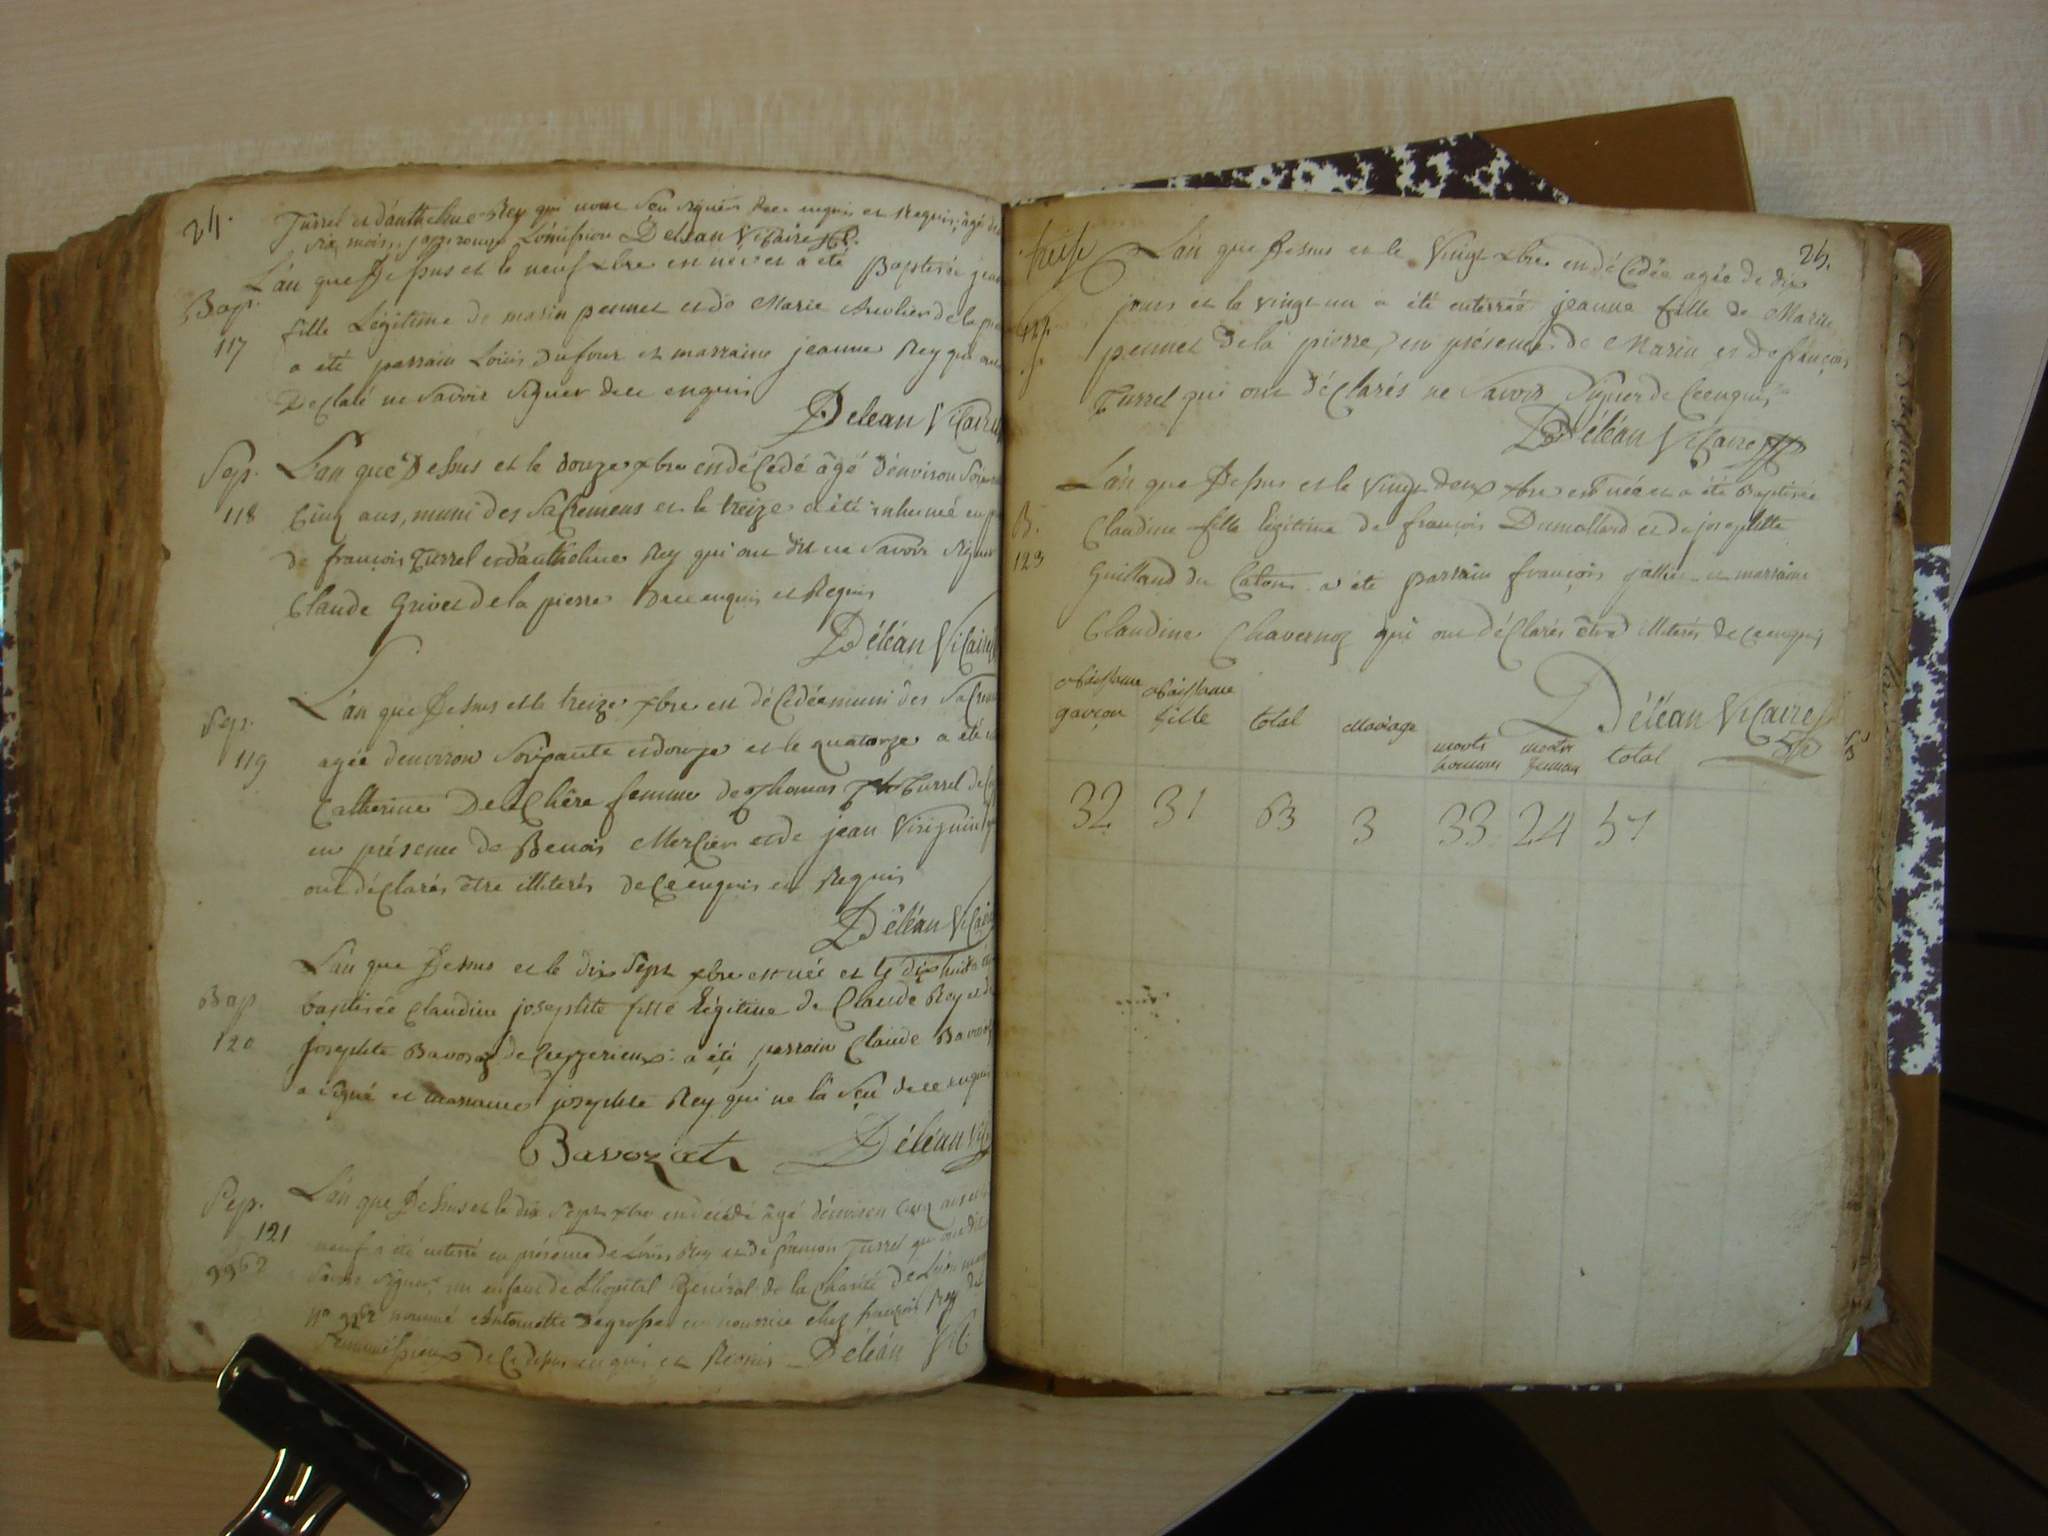 24.
Turrel et d'anthelme Rey qui n'ont seu signer de ce enquis et Requis, âgé de
six mois, j'approuve l'omission Déléan Vicaire
L'an que Dessus et le neuf xbre est née et a été Baptisée jean
Bap.
117
fille Légitime de marin pennet et de Marie Auvlier de la pie
a été parrain Loüis dufour et marraine jeanne Rey qui ont
Déclaré ne savoir signer de ce enquis
Déléan Vicaire
Sep.
118
L'an que Dessus et le douze xbre est décédé âgé d'environ soixan
Cinq ans, muni des Sacremens et le treize a été inhumé en p
de françois Turrel et d'anthelme Rey qui ont dit ne savoir signer
Claude Grivet de la pierre de ce enquis et Requis
Déléan Vicaire
Sep.
119
L'an que Dessus et le treize xbre est décédée muni des Sacrem
agée d'environ soixante et douze et le quatorze a été
Catherine Deschêre femme de Thomas Turrel de
en présence de Benoit Mercier et de jean Viriguin
ont déclarés être illiterés de ce enquis et Requis
Déléan Vicaire
Bap
120
L'an que Dessus et le dix sept xbre est née et le dix huit
baptisée Claudine josephte fille légitime de Claude Rey et de
josephte Bavozat de Cuzzerieux: a été parrain Claude Bavoza
a signé et marraine josephte Rey qui ne l'a seu de ce enquis
Bavozat Déléan Vic
Sep.
121
9962
L'an que Dessus et le dix sept xbre est décédé âgé d'environ cinq ans et
neuf a été enterré en présence de Loüis Rey et de françois Turrel qui ont dit
savoir signer, un enfant de l'hopital Général de la Charité de Lion
no 9962 nommé Antoinette Degrosse en nourrice chez françois Rey
de ce dessus enquis et Requis Déléan Vic
25.
L'an que Dessus et le Vingt xbre est décédée agée de dix
Sep
122
jours et le vingt un a été enterrée jeanne fille de Marin
pennet de la pierre, en présence de Marin et de françois
Turrel qui ont déclarés ne savoir signer de ce enquis
Déléan Vicaire
L'an que Dessus et le vingt deux xbre est née et a été Baptisée
B.
123
Claudine fille légitime de françois Dumollard et de josephte
Guilland du Caton: a été parrain françois jallier et marraine
Claudine Chavernoz qui ont déclarés être illiterés de ce enquis
Déléan Vicaire
Naissance garçon
Naissance fille
total
Mariage
morts hommes
morts femmes
total
32 31 63 3 33 24 57